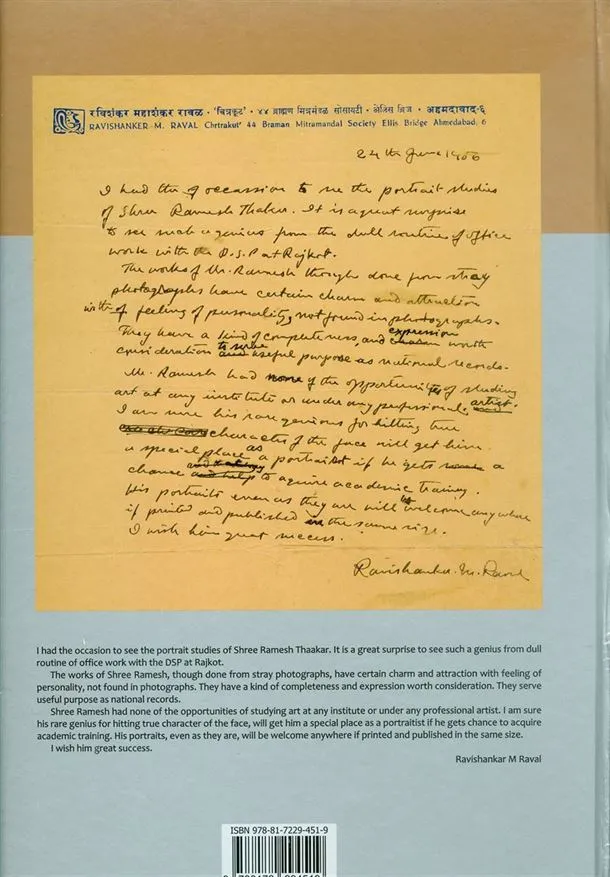 રવિશંકર મહાશંકર રાવળ · 'ચિત્રકૂટ' · ૪૪ બ્રાહ્મણ મિત્રમંડળ સોસાયટી · એલિસ બ્રિજ · અહમદાવાદ-૬
RAVISHANKER M. RAVAL Chrtrakut' 44 Braman Mitramandal Society Ellis Bridge Ahmedabad, 6
24th June 1966
I had the occassion to see the portrait studies
of Shree Ramesh Thakar. It is a great surprise
to see such a genious from the dull routine of office
work with the D.S.P at Rajkot.
The works of Mr. Ramesh though done from stray
photographs have certain charm and attraction
with feeling of personality, not found in photographs.
They have a kind of completeness, and expression worth
consideration to serve useful purpose as national records.
Mr. Ramesh had none of the opportunities of studying
art at any institute or under any professional artist.
I am sure his rare genious for hitting true
character of the face will get him
a special place as a portraitist if he gets a
chance to aquire academic training.
His portraits even as they are will be welcome anywhere
if printed and published in the same size.
I wish him great success.
Ravishanker. M. Raval
I had the occasion to see the portrait studies of Shree Ramesh Thaakar. It is a great surprise to see such a genius from dull
routine of office work with the DSP at Rajkot.
The works of Shree Ramesh, though done from stray photographs, have certain charm and attraction with feeling of
personality, not found in photographs. They have a kind of completeness and expression worth consideration. They serve
useful purpose as national records.
Shree Ramesh had none of the opportunities of studying art at any institute or under any professional artist. I am sure
his rare genius for hitting true character of the face, will get him a special place as a portraitist if he gets chance to acquire
academic training. His portraits, even as they are, will be welcome anywhere if printed and published in the same size.
I wish him great success.
Ravishankar M Raval
ISBN 978-81-7229-451-9